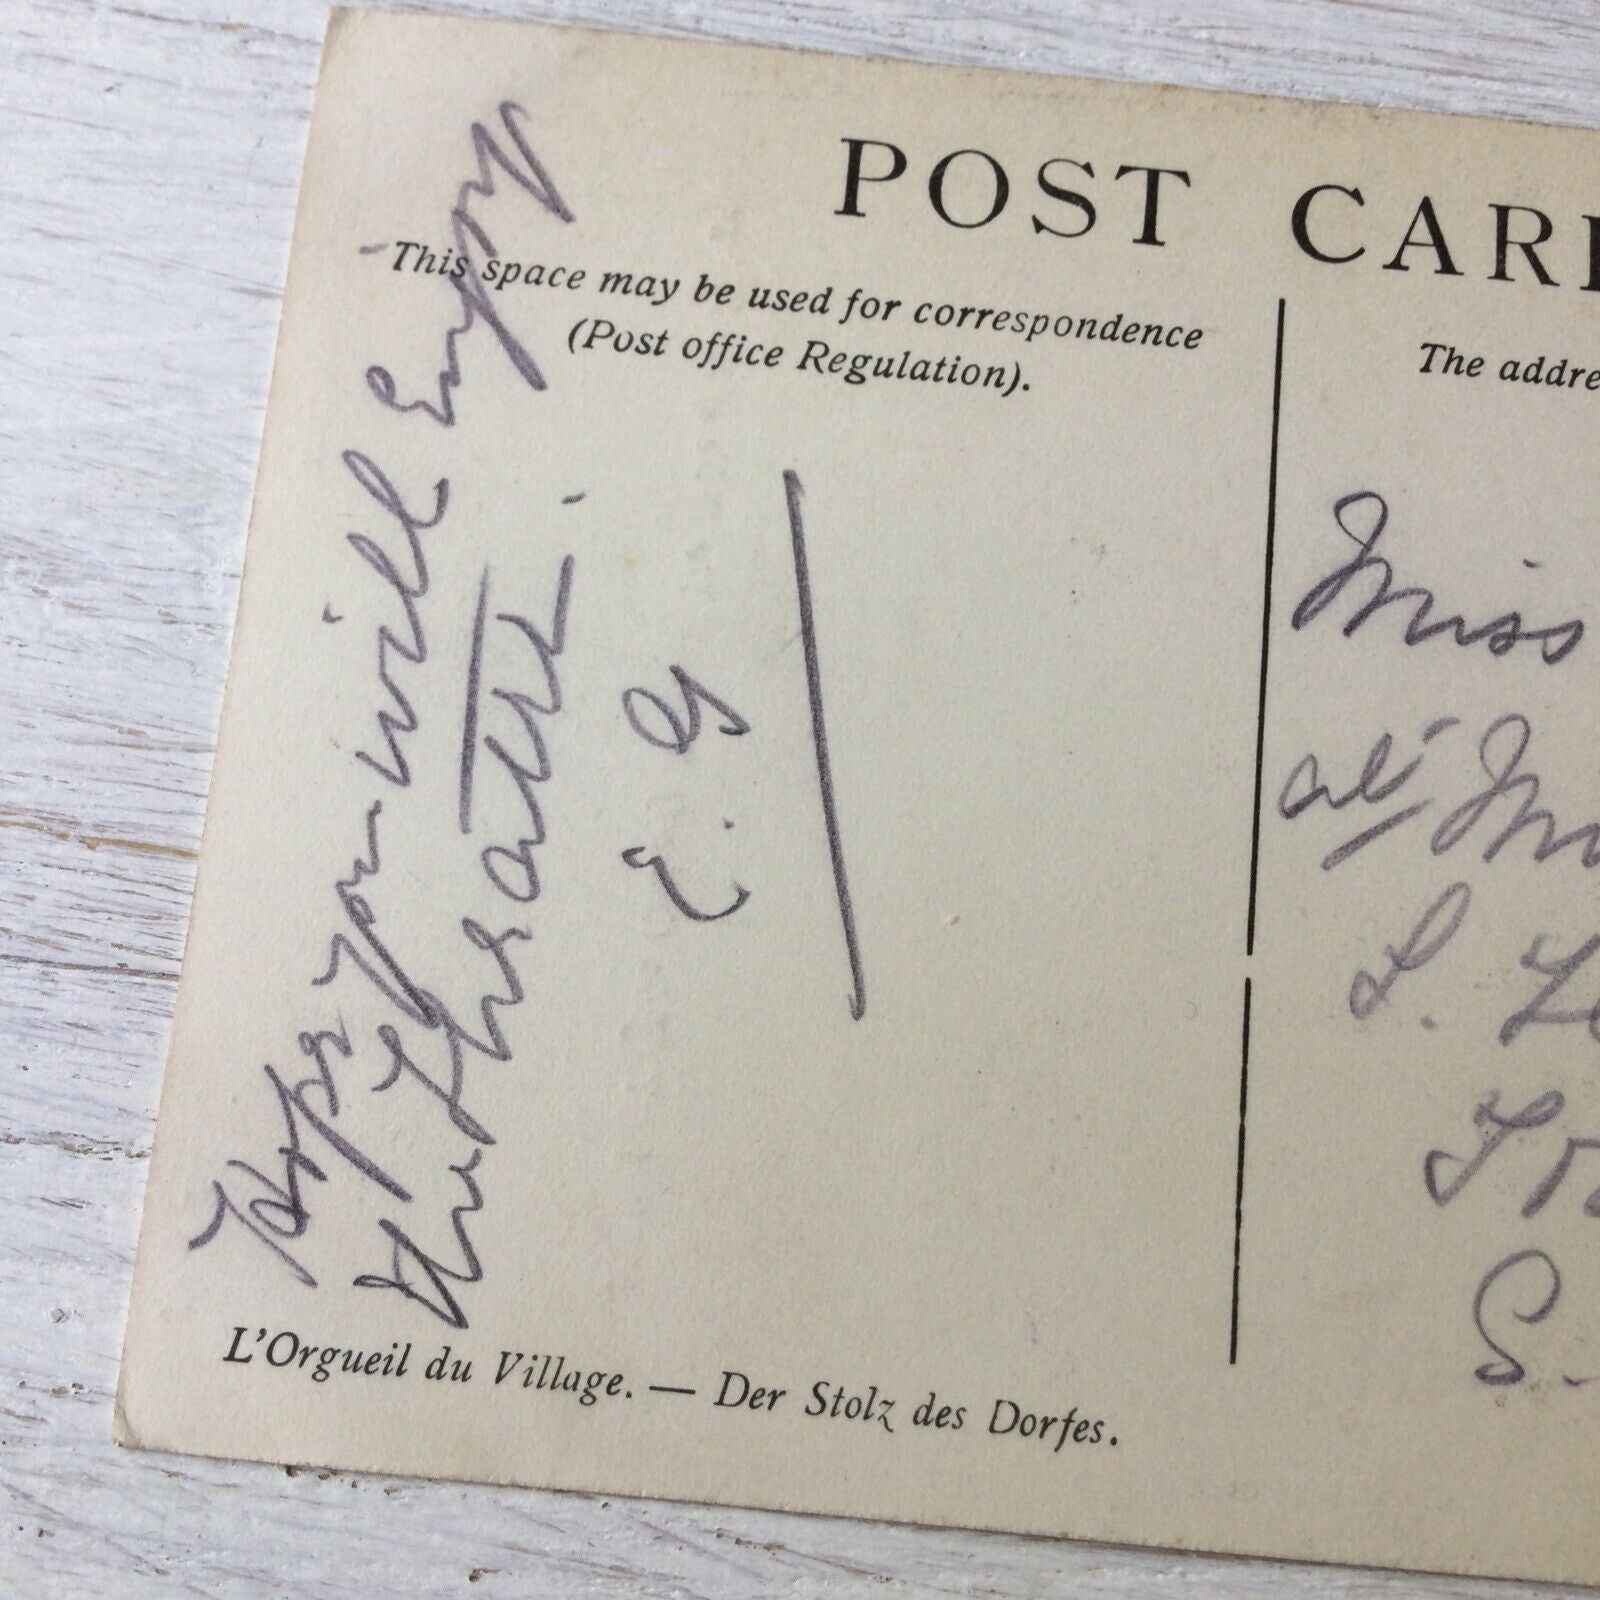 POST CAR
This space may be used for correspondence
(Post office Regulation).
The addre
Hope you will Enjoy
the theatre.
E. G
Miss
at
L.
S.
L'Orgueil du Village. — Der Stolz des Dorfes.